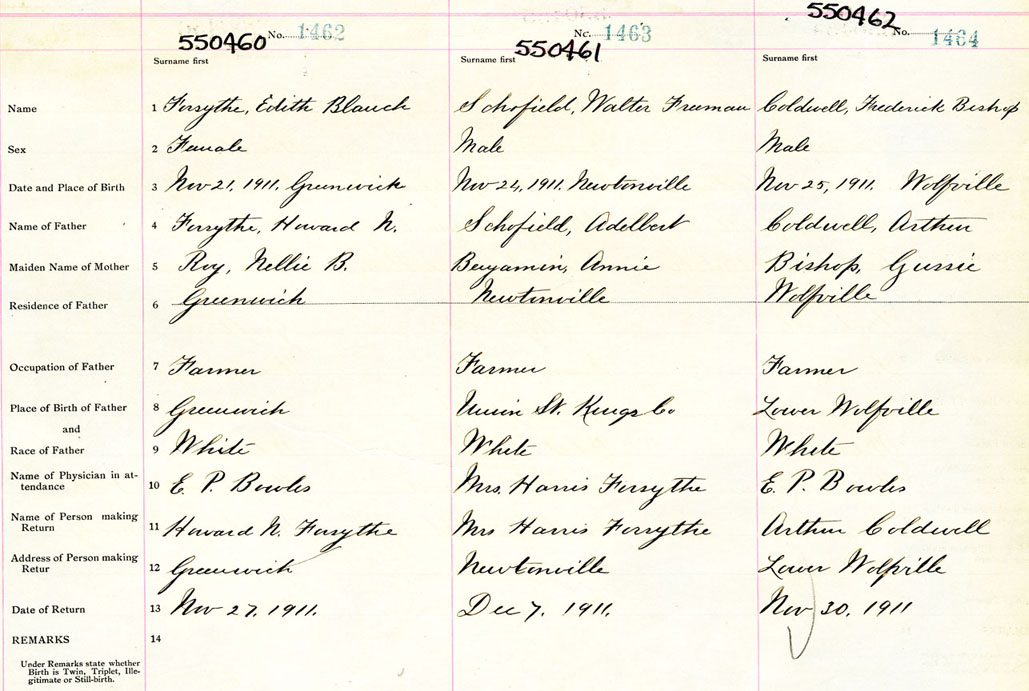 550460 No. 1462 550461 No. 1463 550462 No. 1464
Surname first Surname first Surname first
Name 1 Forsythe, Edith Blanch Schofield, Walter Freeman Coldwell, Frederick Bishop
Sex 2 Female Male Male
Date and Place of Birth 3 Nov 21, 1911. Greenwich Nov 24, 1911. Newtonville Nov 25, 1911. Wolfville
Name of Father 4 Forsythe, Howard N. Schofield, Adelbert Coldwell, Arthur
Maiden Name of Mother 5 Roy, Nellie B. Benjamin, Annie Bishop, Gussie
Residence of Father 6 Greenwich Newtonville Wolfville
Occupation of Father 7 Farmer Farmer Farmer
Place of Birth of Father 8 Greenwich Union St. Kings Co Lower Wolfville
and
Race of Father 9 White White White
Name of Physician in at-
tendance 10 E. P. Bowles Mrs. Harris Forsythe E. P. Bowles
Name of Person making
Return 11 Howard N. Forsythe Mrs Harris Forsythe Arthur Coldwell
Address of Person making
Retur 12 Greenwich Newtonville Lower Wolfville
Date of Return 13 Nov 27, 1911. Dec 7, 1911. Nov 30, 1911
REMARKS 14
Under Remarks state whether
Birth is Twin, Triplet, Ille-
gitimate or Still-birth.